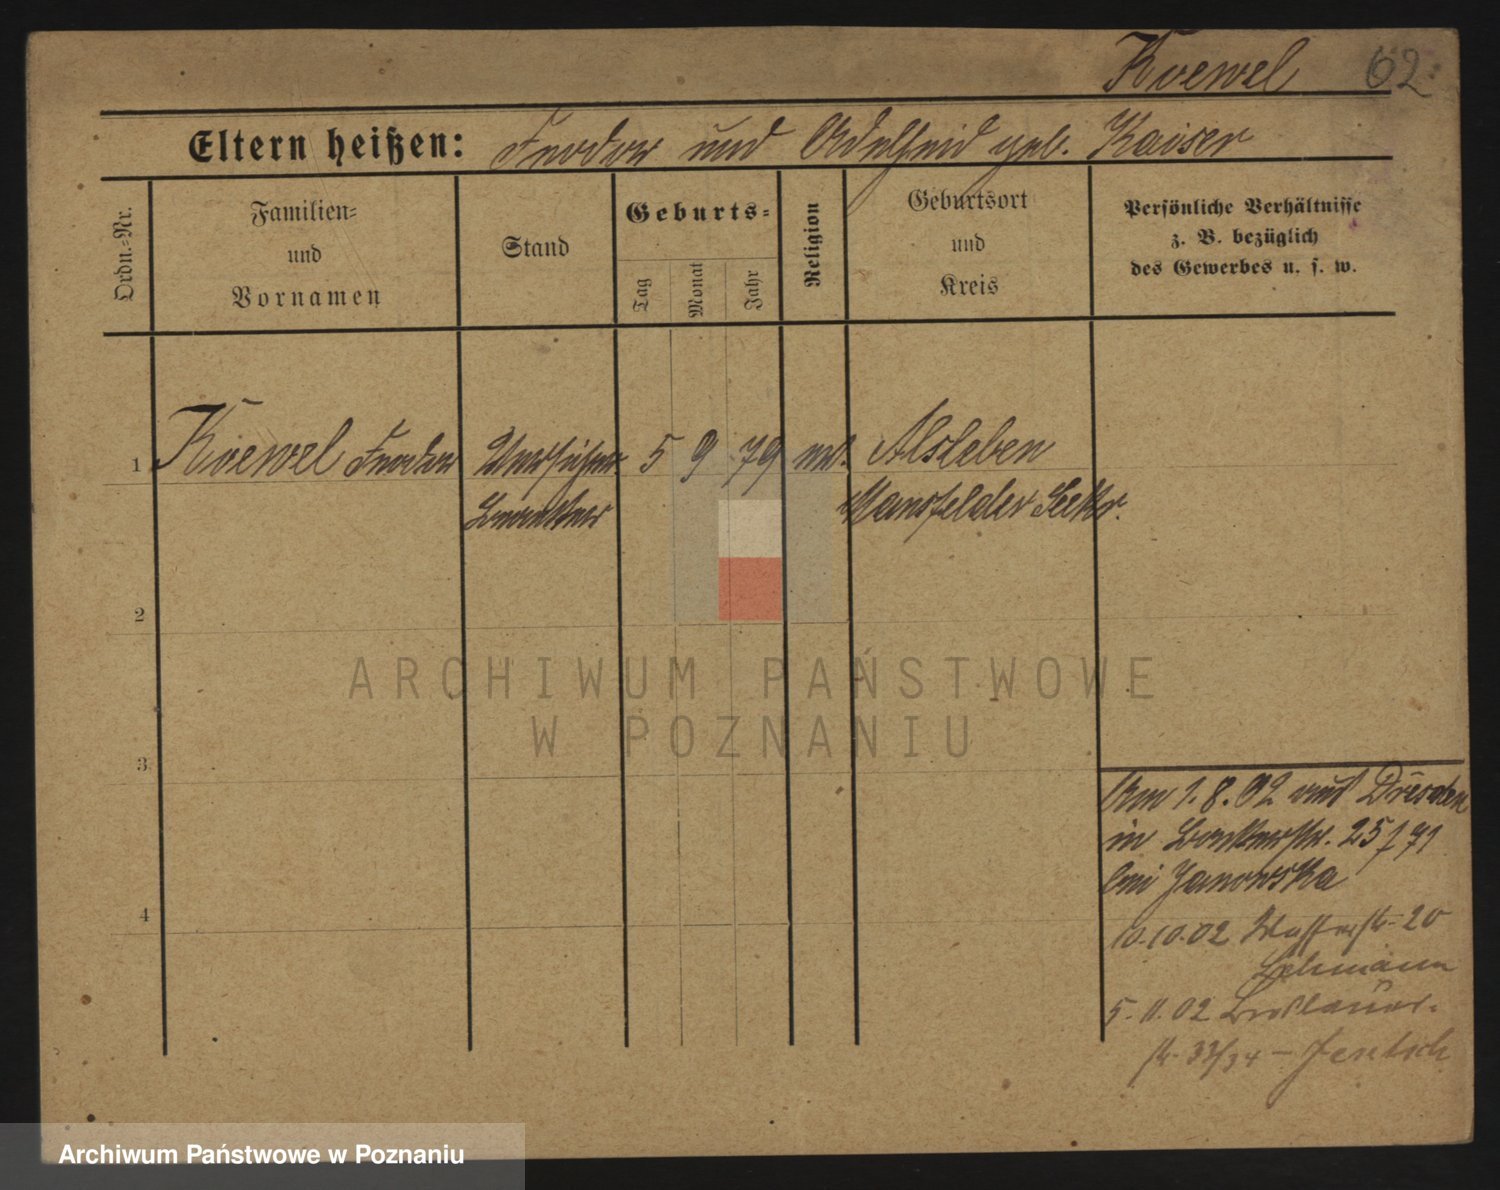 Koewel 02
Eltern heißen: Feodor und Adelheid geb. Kaiser
Ordn.=Nr.
Familien=
und
Vornamen
Stand
Geburts=
Tag
Monat
Jahr
Religion
Geburtsort
und
Kreis
Persönliche Verhältnisse
z. B. bezüglich
des Gewerbes u. s. w.
1 Koewel Feodor 5 9 79 Alsleben
Mansfelder Seekr.
2
3
4
Am 1.8.02 aus Dresden
in 25/71
bei Janowska
10.10.02 20
Lehmann
5.11.02 Breslauer-
str. 33/34 - Jentsch
ARCHIWUM PAŃSTWOWE
W POZNANIU
Archiwum Państwowe w Poznaniu